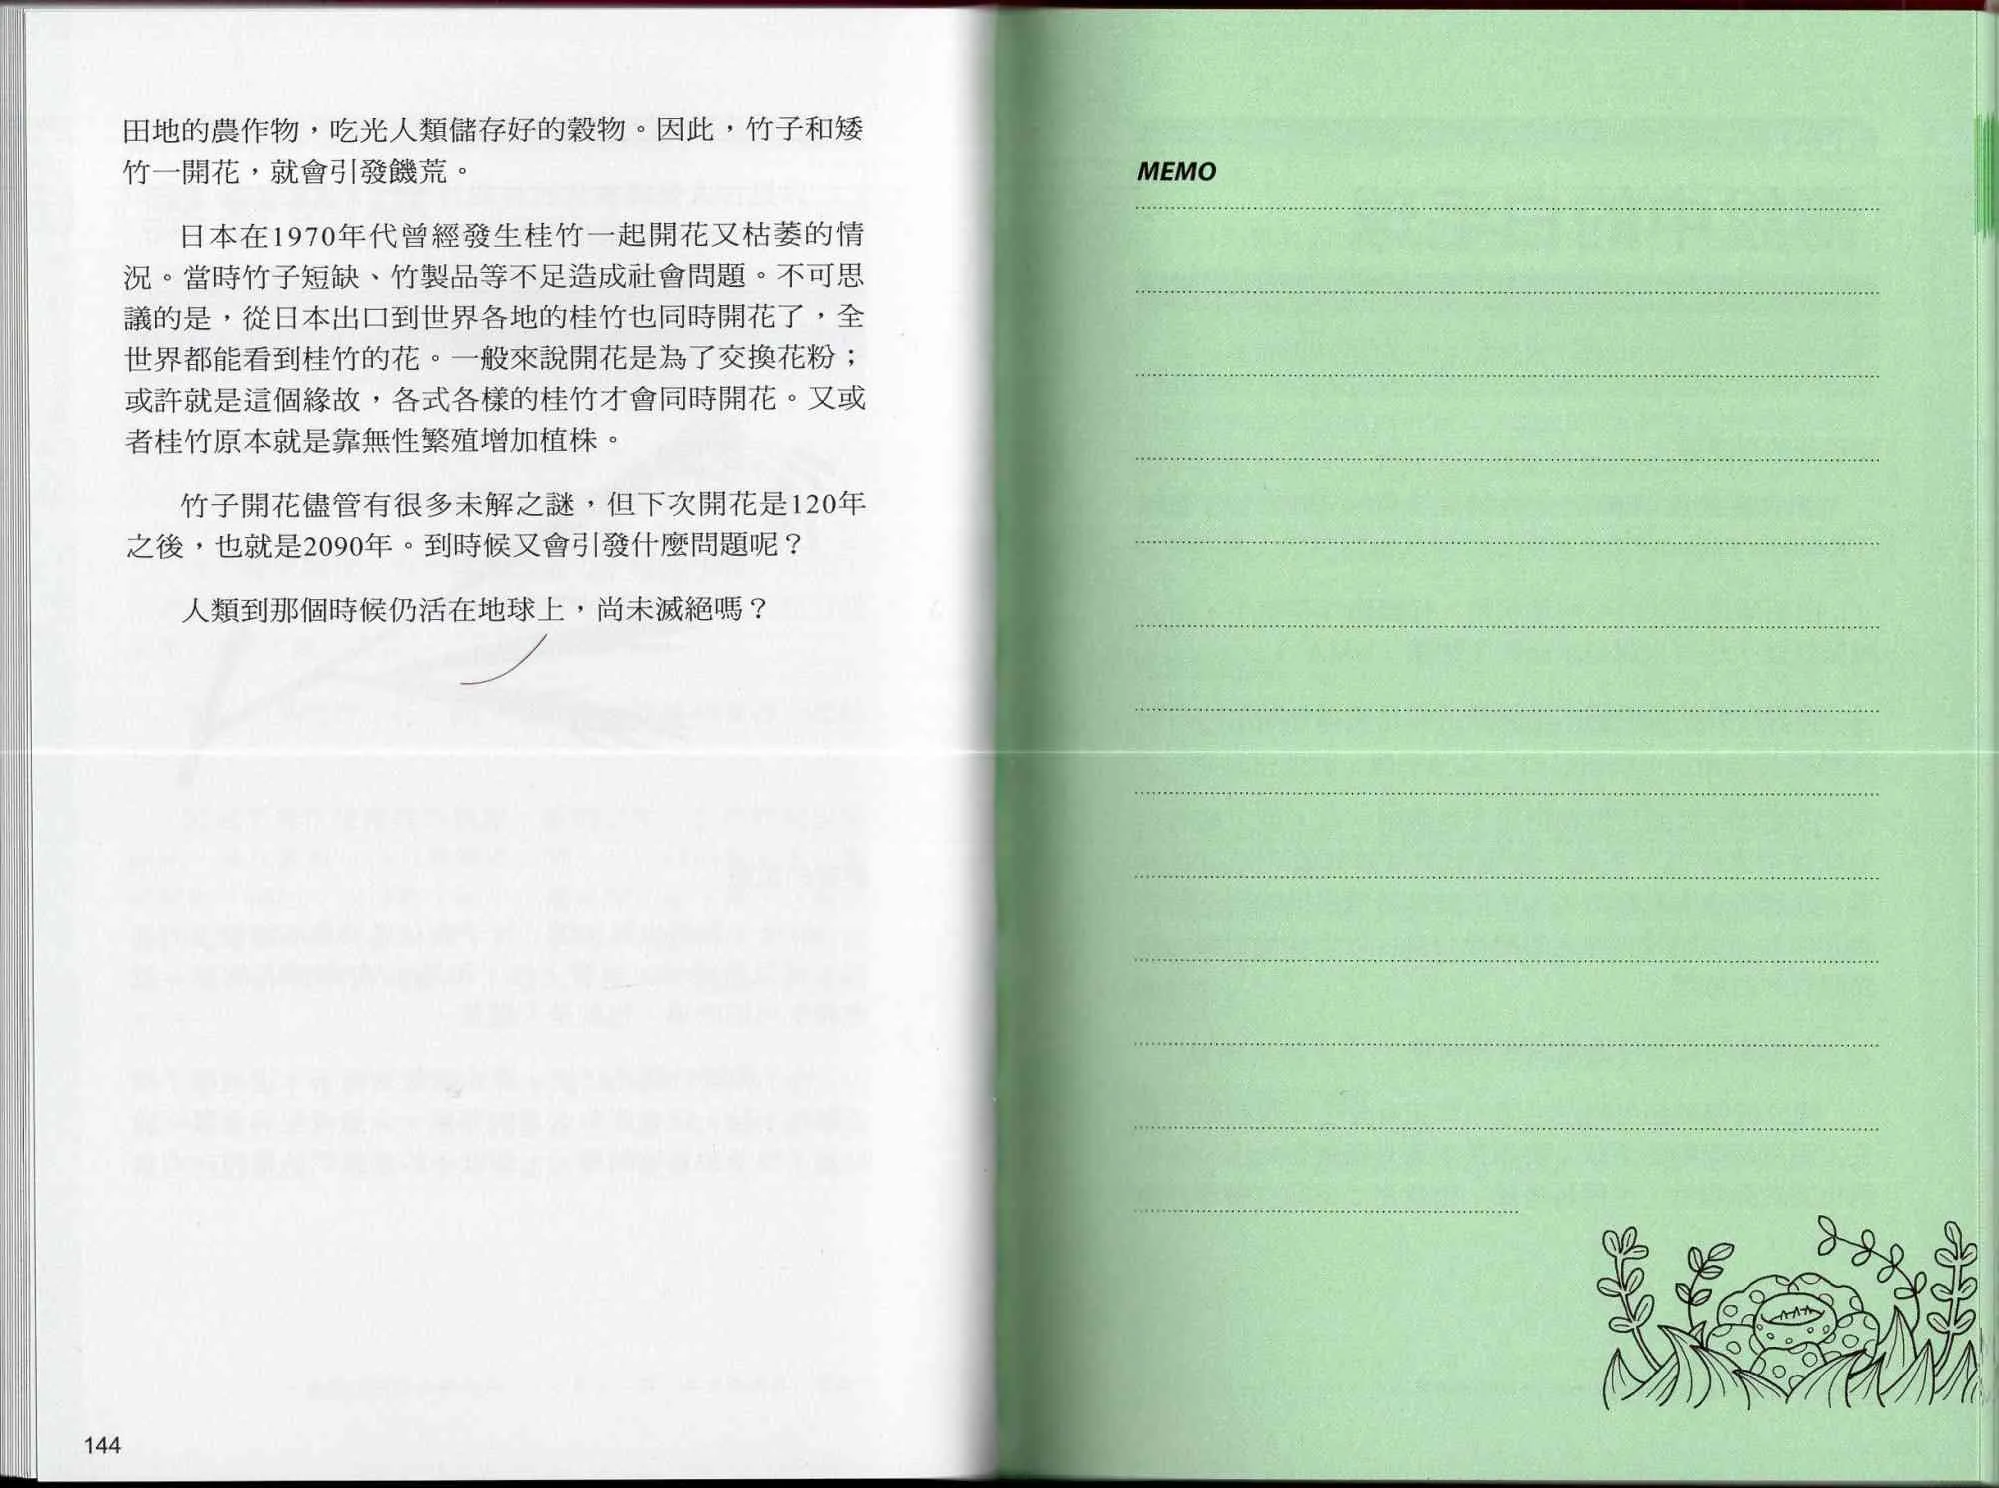 田地的農作物，吃光人類儲存好的穀物。因此，竹子和矮
竹一開花，就會引發饑荒。
日本在1970年代曾經發生桂竹一起開花又枯萎的情
況。當時竹子短缺、竹製品等不足造成社會問題。不可思
議的是，從日本出口到世界各地的桂竹也同時開花了，全
世界都能看到桂竹的花。一般來說開花是為了交換花粉；
或許就是這個緣故，各式各樣的桂竹才會同時開花。又或
者桂竹原本就是靠無性繁殖增加植株。
竹子開花儘管有很多未解之謎，但下次開花是120年
之後，也就是2090年。到時候又會引發什麼問題呢？
人類到那個時候仍活在地球上，尚未滅絕嗎？
144
MEMO